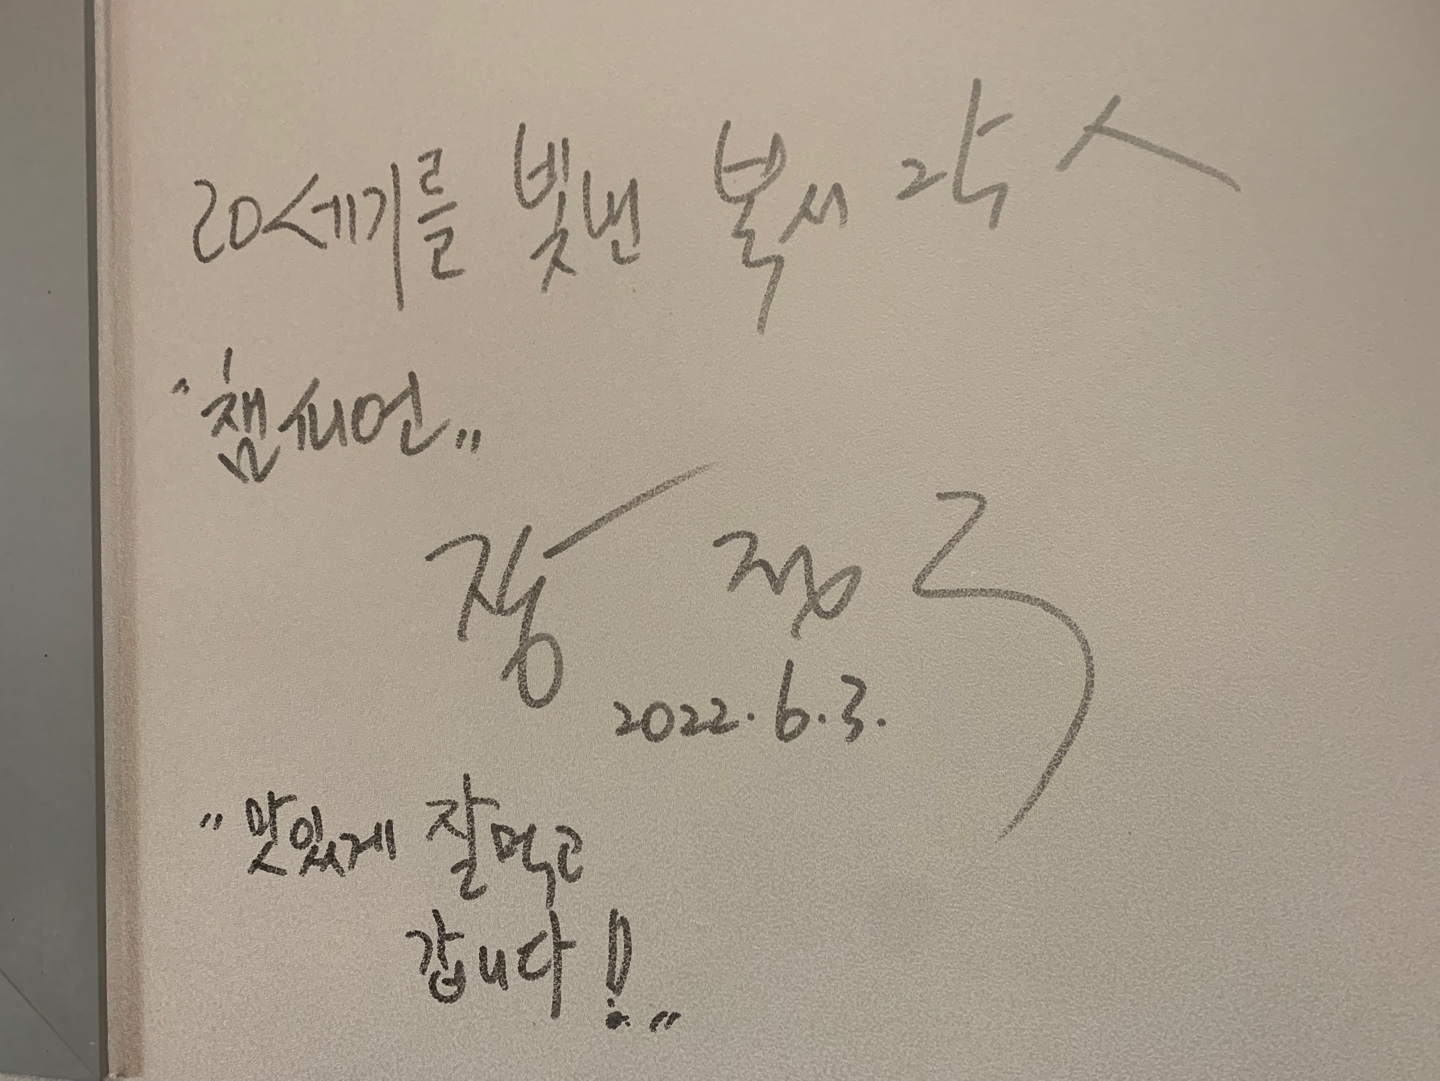 20세기를 빛낸 복서 락스
"챔피언"
장 정구
2022.6.3.
"맛있게 잘먹고
갑니다!"